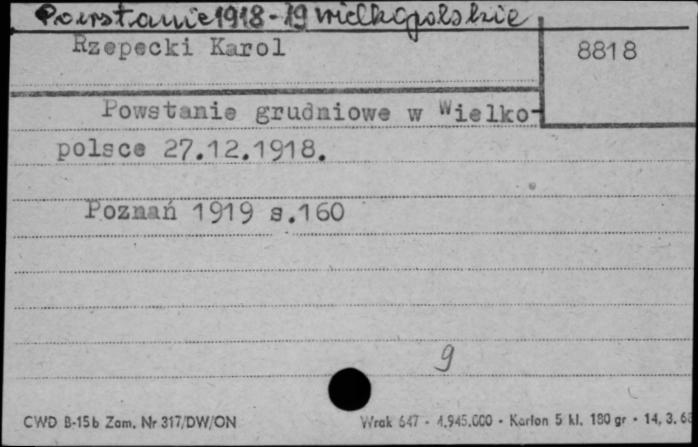 Powstanie 1918-19 wielkopolskie
Rzepecki Karol
8818
Powstanie grudniowe w Wielko-
polsce 27.12.1918.
Poznań 1919 s.160
9
CWD B-15b Zam. Nr 317/DW/ON
Wrak 647 - 4.945.000 - Karton 5 kl. 180 gr - 14, 3. 63